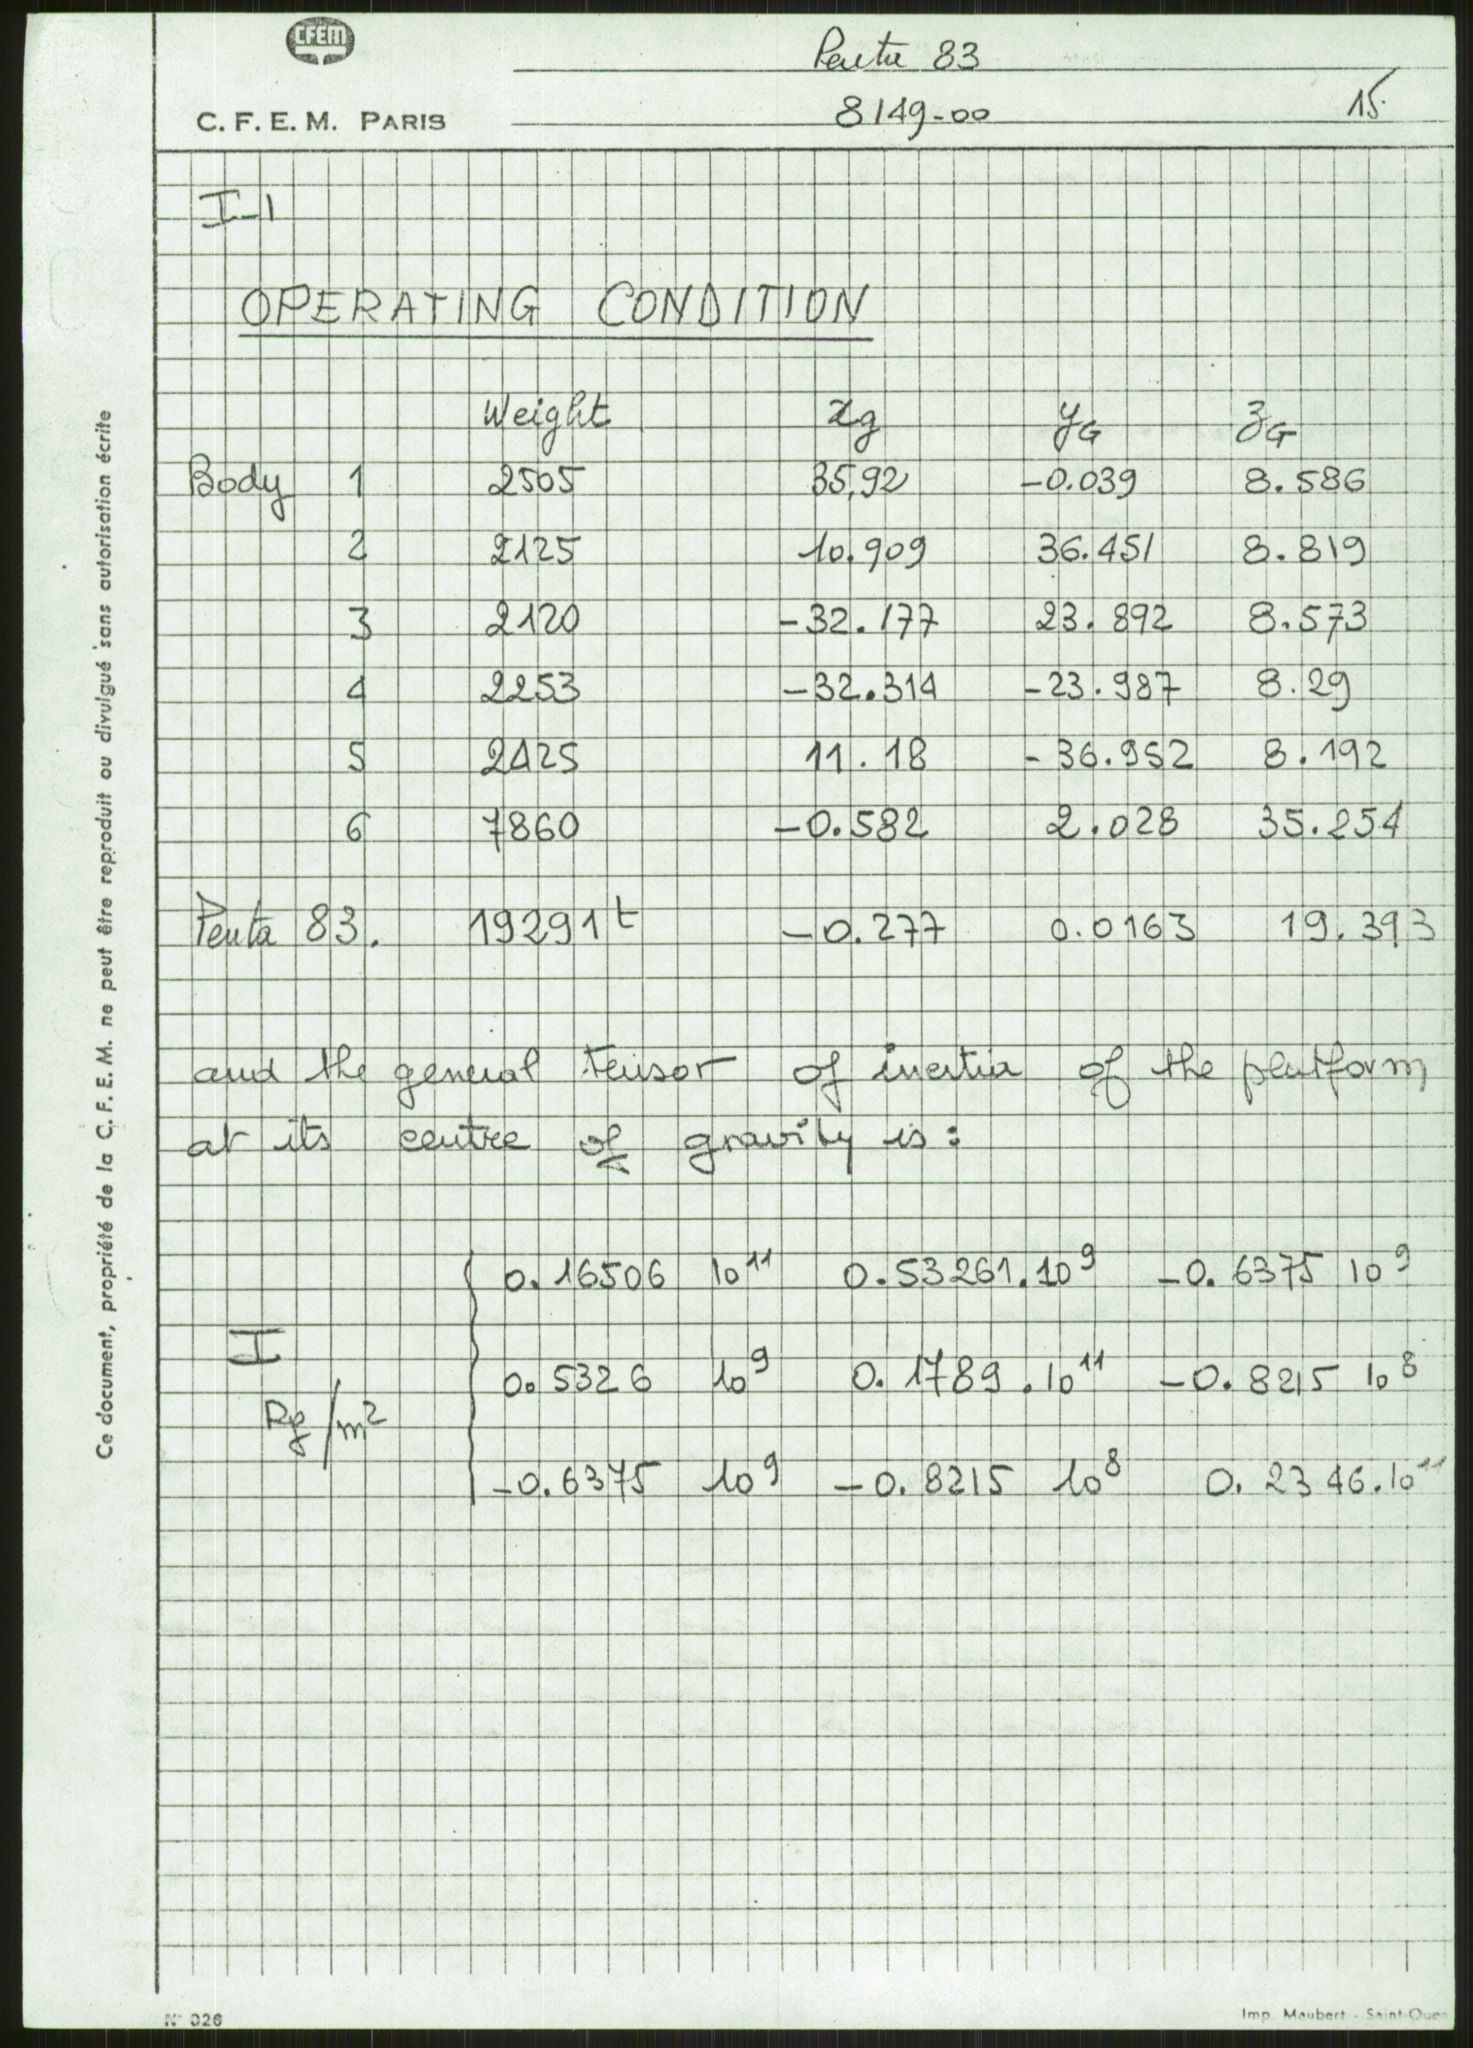 CFEM
Penta 83
C. F. E. M. PARIS
8149-00
15.
I-1
OPERATING CONDITION
Weight xg yG zG
Body 1 2505 35,92 -0.039 8.586
2 2125 10.909 36.451 8.819
3 2120 -32.177 23.892 8.573
4 2253 -32.314 -23.987 8.29
5 2425 11.18 -36.952 8.192
6 7860 -0.582 2.028 35.254
Penta 83. 19291t -0.277 0.0163 19.393
and the general tensor of inertia of the platform
at its centre of gravity is:
0.16506 10^11 0.53261.10^9 -0.6375 10^9
I
0.5326 10^9 0.1789.10^11 -0.8215 10^8
Kg/m²
-0.6375 10^9 -0.8215 10^8 0.2346.10^11
Ce document, propriété de la C. F. E. M. ne peut être reproduit ou divulgué sans autorisation écrite
N° 326
Imp. Maubert - Saint-Ouen